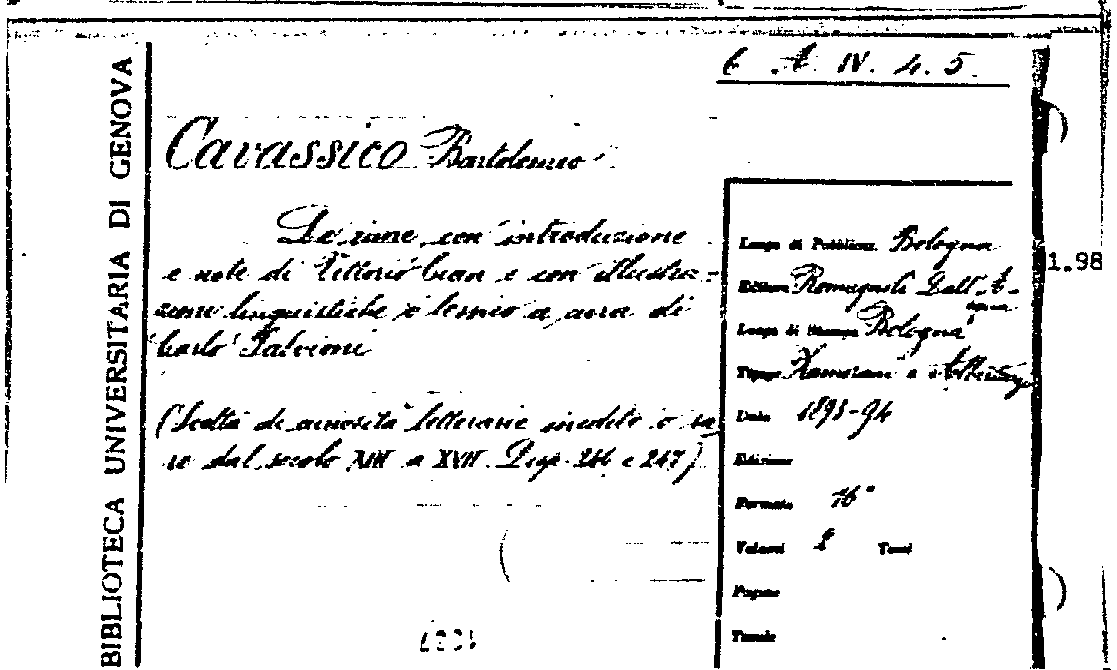 6 A IV. 4. 5.
BIBLIOTECA UNIVERSITARIA DI GENOVA
Cavassico Bartolomeo
Le rime con introduzione
e note di Vittorio Cian e con illustra-
zioni linguistiche e lessico a cura di
Carlo Salvioni
(Scelta di curiosità letterarie inedite o ra
re dal secolo XIII a XVII. Disp. 246 e 247)
Luogo di Pubblicaz. Bologna
Editore Romagnoli Dall'A-
cqua
Luogo di Stampa Bologna
Tipogr.
Data 1893-94
Edizione
Formato 16°
Volumi 2 Tomi
Pagine
Tavole
1.98